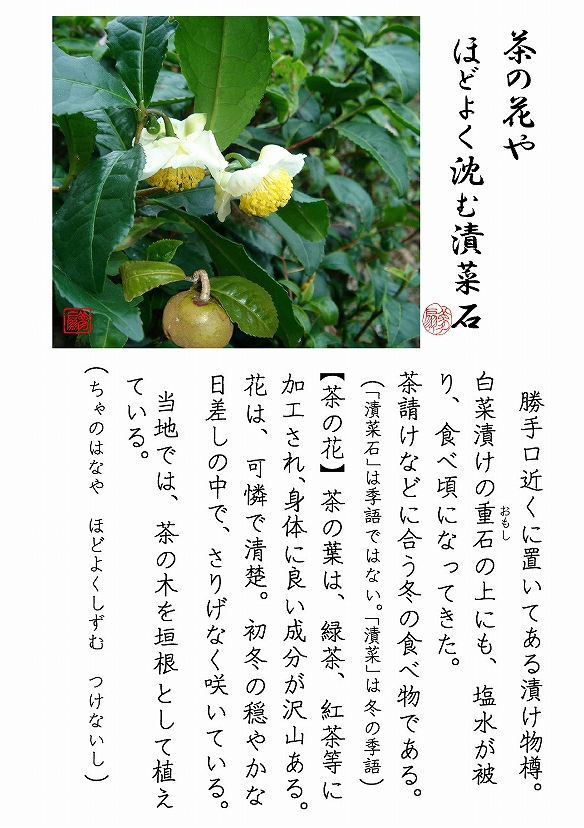 茶の花や
ほどよく沈む漬菜石
勝手口近くに置いてある漬け物樽。
白菜漬けの重石の上にも、塩水が被
おもし
り、食べ頃になってきた。
茶請けなどに合う冬の食べ物である。
(「漬菜石」は季語ではない。「漬菜」は冬の季語)
【茶の花】茶の葉は、緑茶、紅茶等に
加工され、身体に良い成分が沢山ある。
花は、可憐で清楚。初冬の穏やかな
日差しの中で、さりげなく咲いている。
当地では、茶の木を垣根として植え
ている。
(ちゃのはなや ほどよくしずむ つけないし)